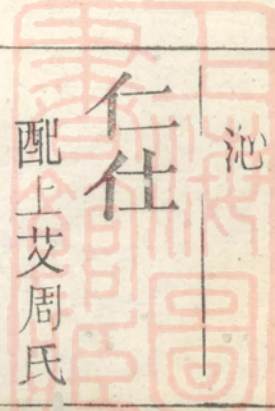 沁
仁仕
配上艾周氏